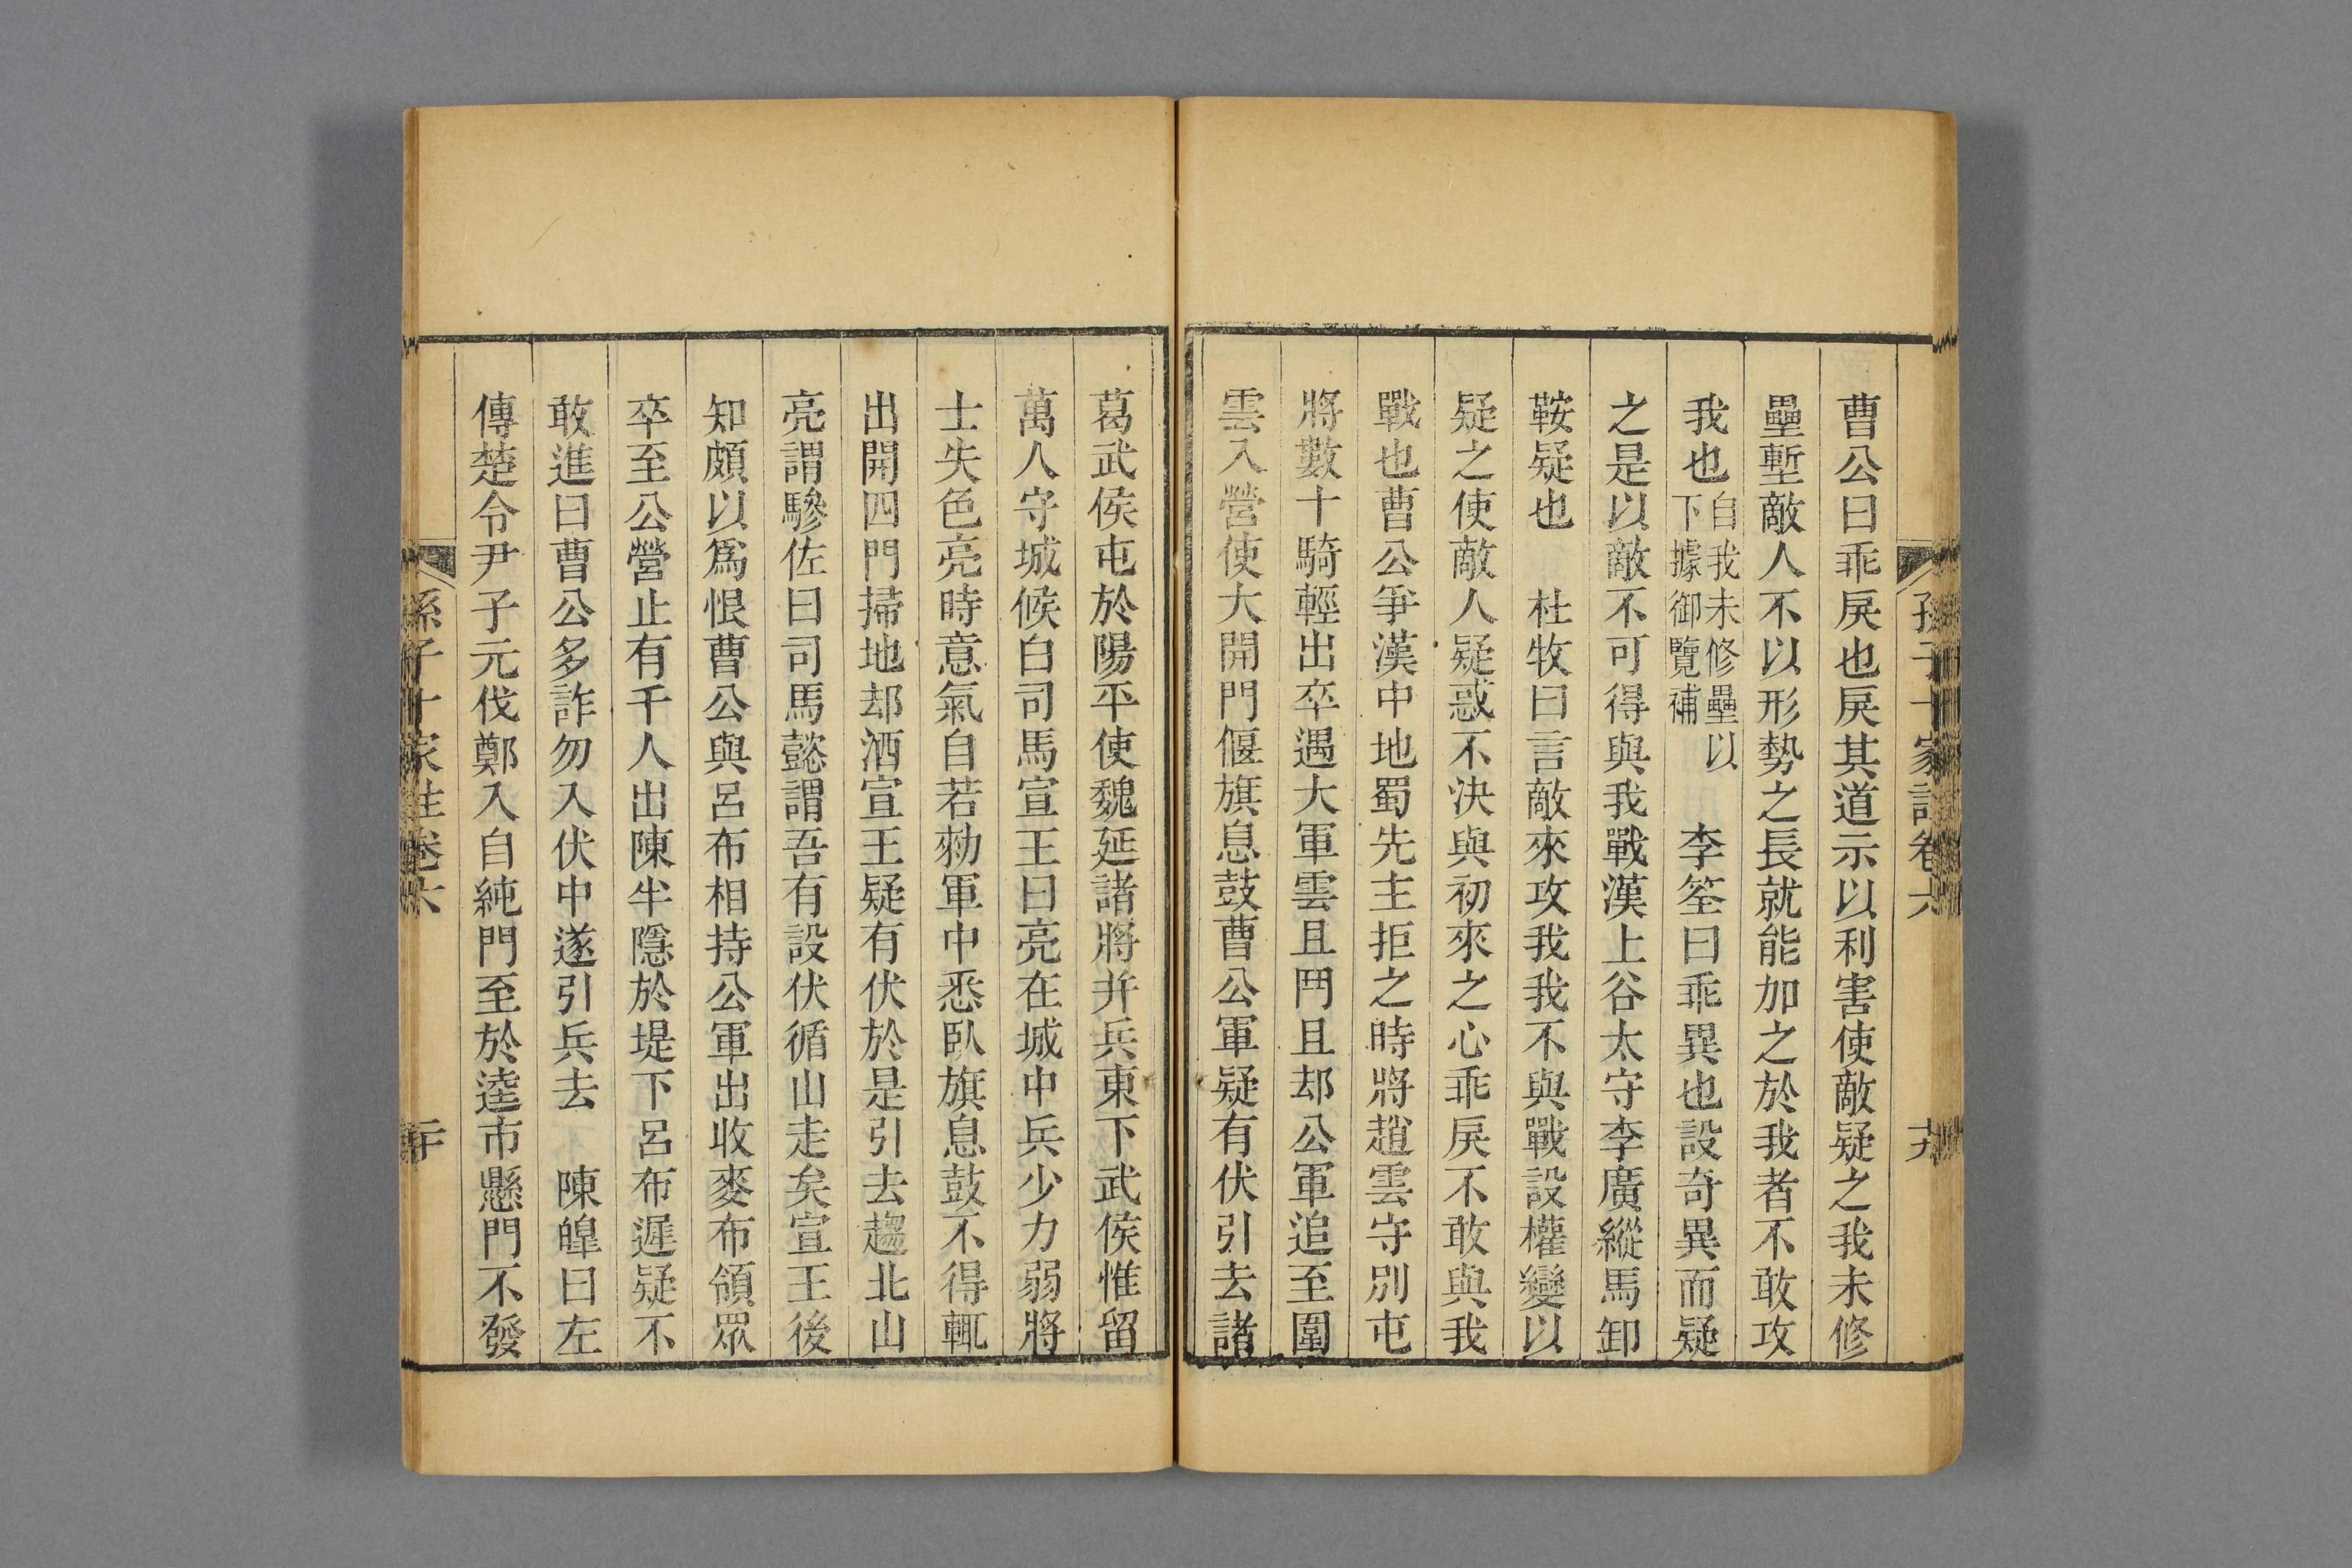 孫子十家註卷六 十九
曹公曰乖戾也戾其道示以利害使敵疑之我未修
壘塹敵人不以形勢之長就能加之於我者不敢攻
我也自我未修壘以下據御覽補 李筌曰乖異也設奇異而疑
之是以敵不可得與我戰漢上谷太守李廣縱馬卸
鞍疑也 杜牧曰言敵來攻我我不與戰設權變以
疑之使敵人疑惑不決與初來之心乖戾不敢與我
戰也曹公爭漢中地蜀先主拒之時將趙雲守別屯
將數十騎輕出卒遇大軍雲且鬥且却公軍追至圍
雲入營使大開門偃旗息鼓曹公軍疑有伏引去諸
葛武侯屯於陽平使魏延諸將并兵東下武侯惟留
萬人守城候白司馬宣王曰亮在城中兵少力弱將
士失色亮時意氣自若勑軍中悉臥旗息鼓不得輒
出開四門掃地却洒宣王疑有伏於是引去趨北山
亮謂驂佐曰司馬懿謂吾有設伏循山走矣宣王後
知頗以爲恨曹公與呂布相持公軍出收麥布領眾
卒至公營止有千人出陳半隱於堤下呂布遲疑不
敢進曰曹公多詐勿入伏中遂引兵去 陳皥曰左
傳楚令尹子元伐鄭入自純門至於逵市懸門不發
孫子十家註卷六 二十